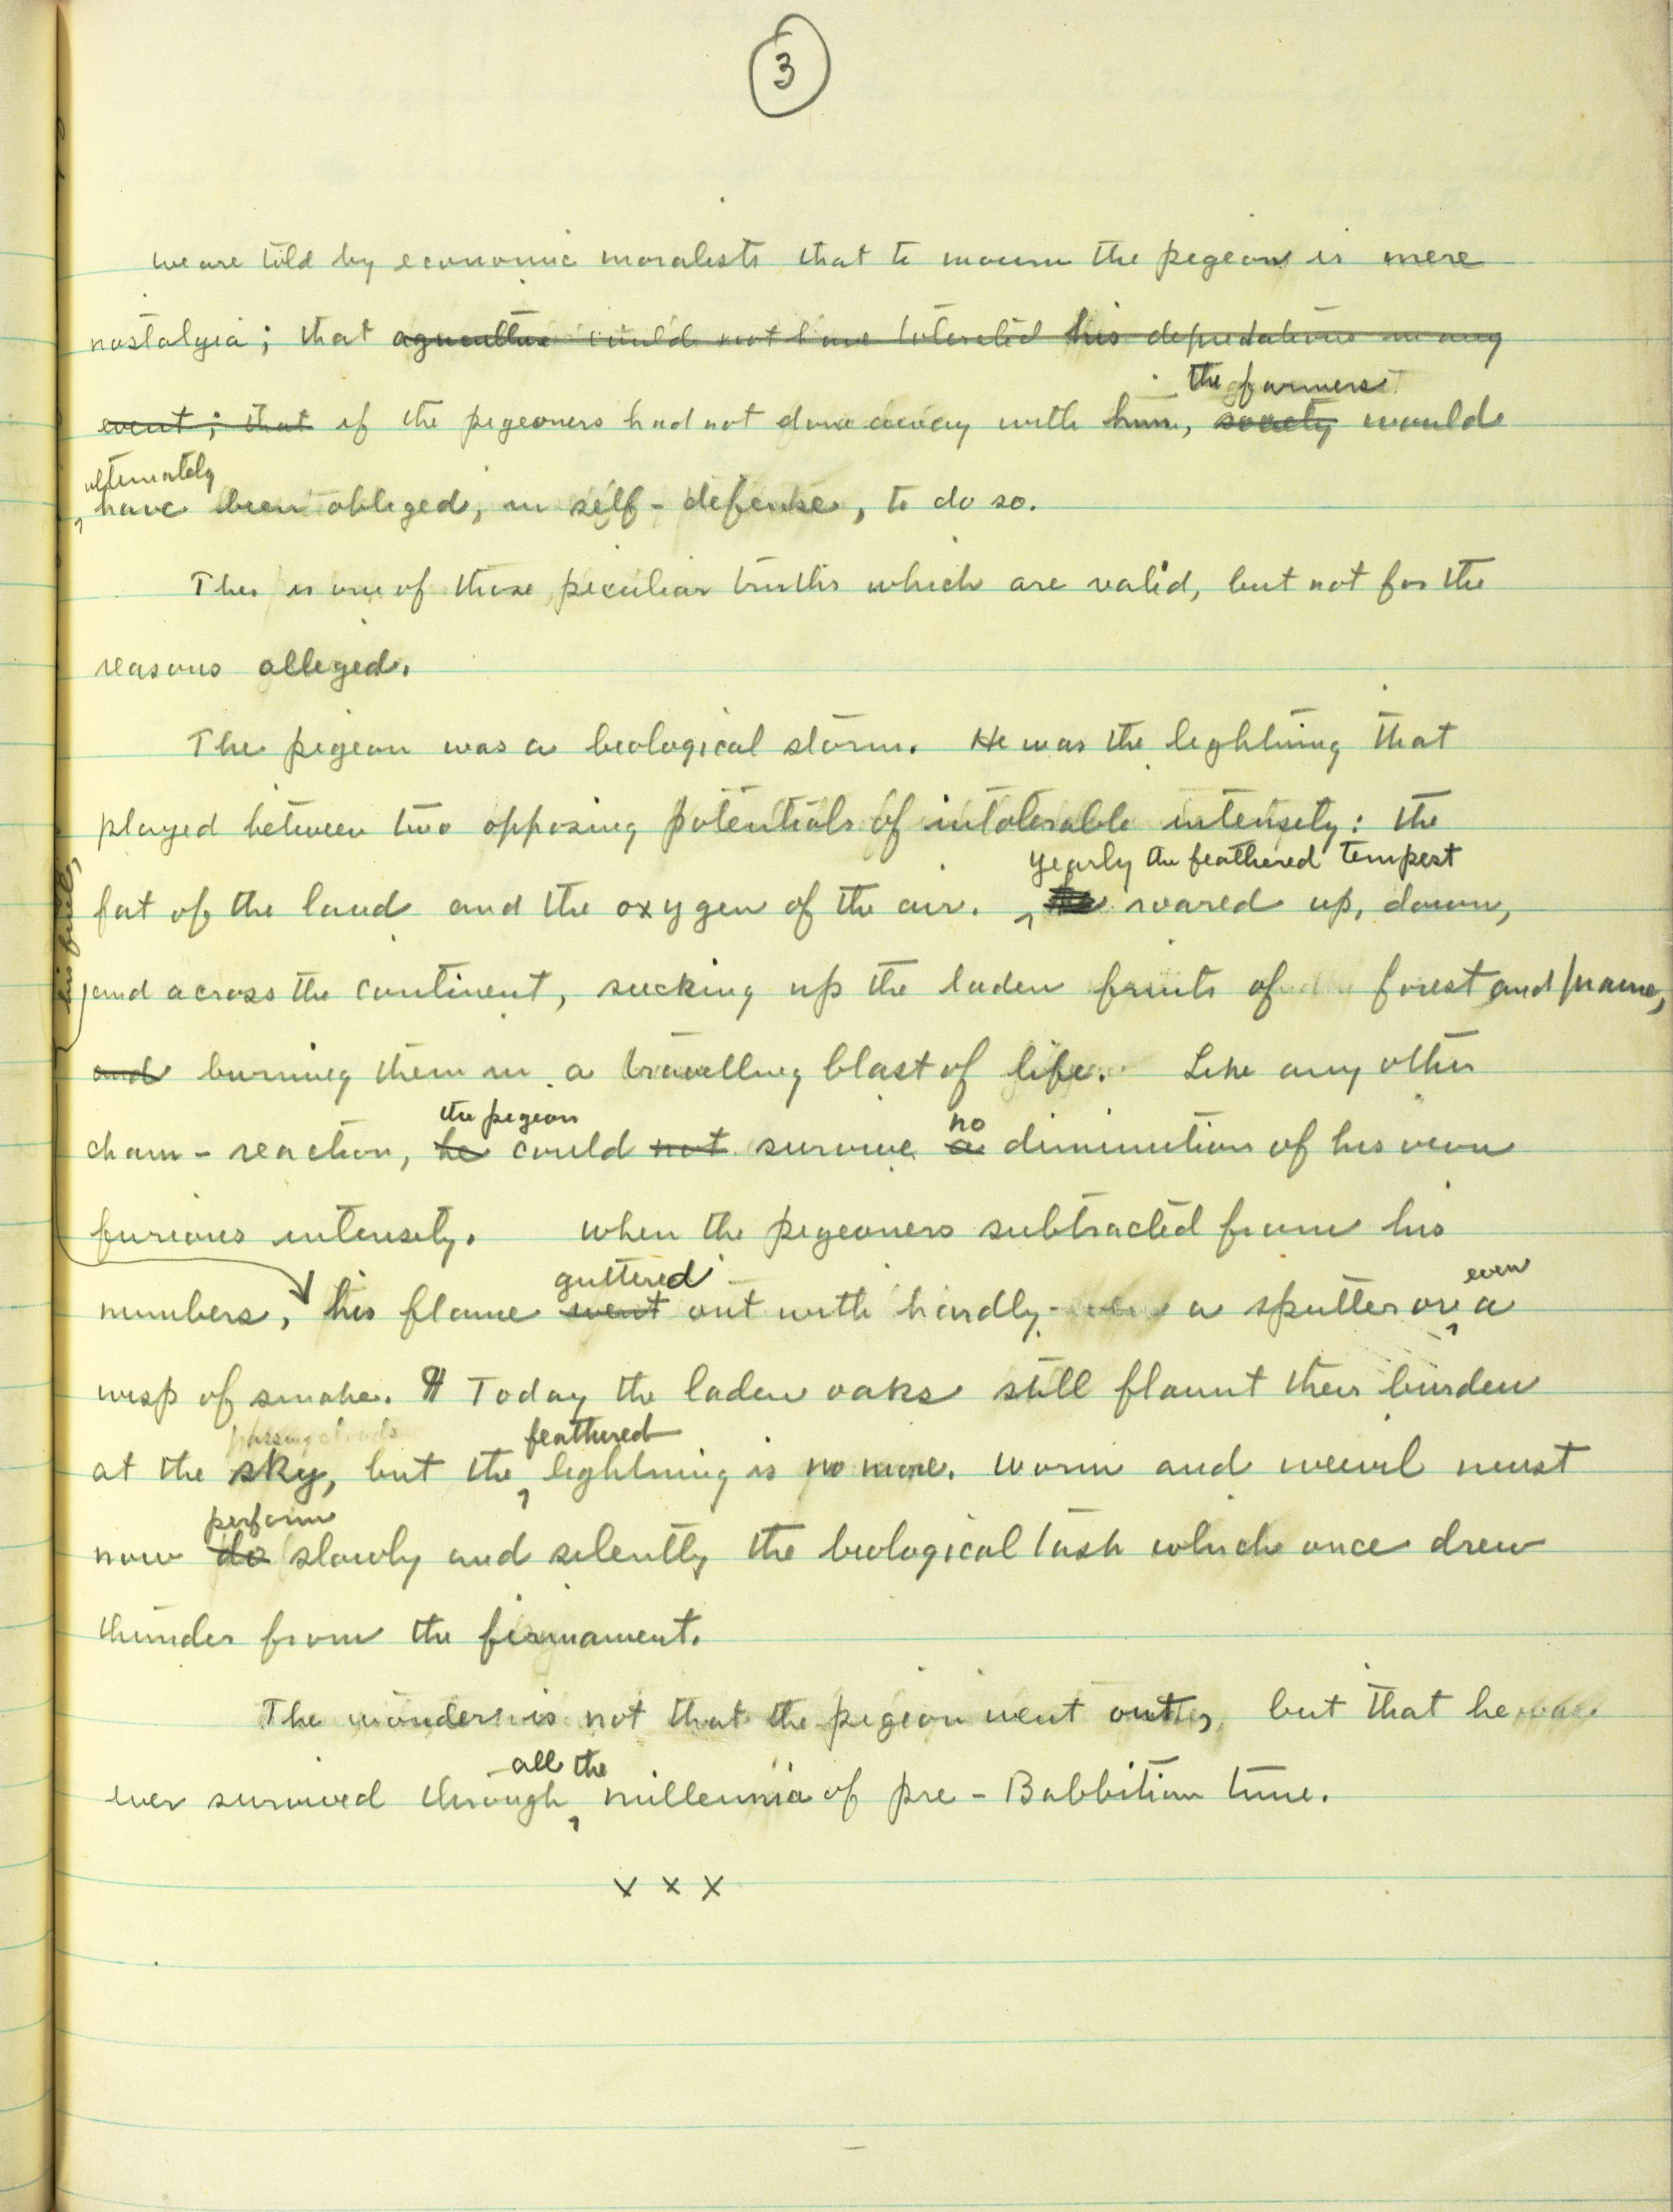 3
we are told by economic moralists that to mourn the pigeon is mere
nostalgia; that agriculture could not have tolerated his depredations in any
the farmers
event; that if the pigeoners had not done away with him, society would
ultimately
have been obliged, in self-defense, to do so.
This is one of those peculiar truths which are valid, but not for the
reasons alleged.
The pigeon was a biological storm. He was the lightning that
played between two opposing potentials of intolerable intensity: the
yearly the feathered tempest
fat of the land and the oxygen of the air. roared up, down,
and across the continent, sucking up the laden fruits of forest and prairie,
and burning them in a travelling blast of life. Like any other
the pigeon no
chain-reaction, he could not survive a diminution of his own
furious intensity. when the pigeoners subtracted from his
guttered even
numbers, his flame went out with hardly a sputter or a
wisp of smoke. ¶ Today the laden oaks still flaunt their burden
passing clouds feathered
at the sky, but the lightning is no more. Worm and weevil must
perform
now do slowly and silently the biological task which once drew
thunder from the firmament.
The wonder is not that the pigeon went out, but that he
all the
ever survived through millennia of pre-Babbitian time.
x x x
his fuel,